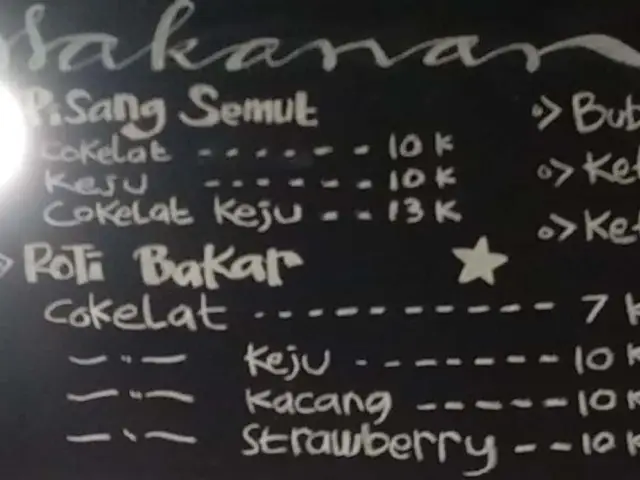 Makanan
Pisang Semut
Cokelat - - - - - - 10 K
Keju - - - - - - 10 K
Cokelat Keju - - 13 K
> Roti Bakar ★
Cokelat - - - - - - - - - - - 7 K
— " — Keju - - - - - - - 10 K
— " — Kacang - - - - - 10 K
— " — Strawberry - - 10 K